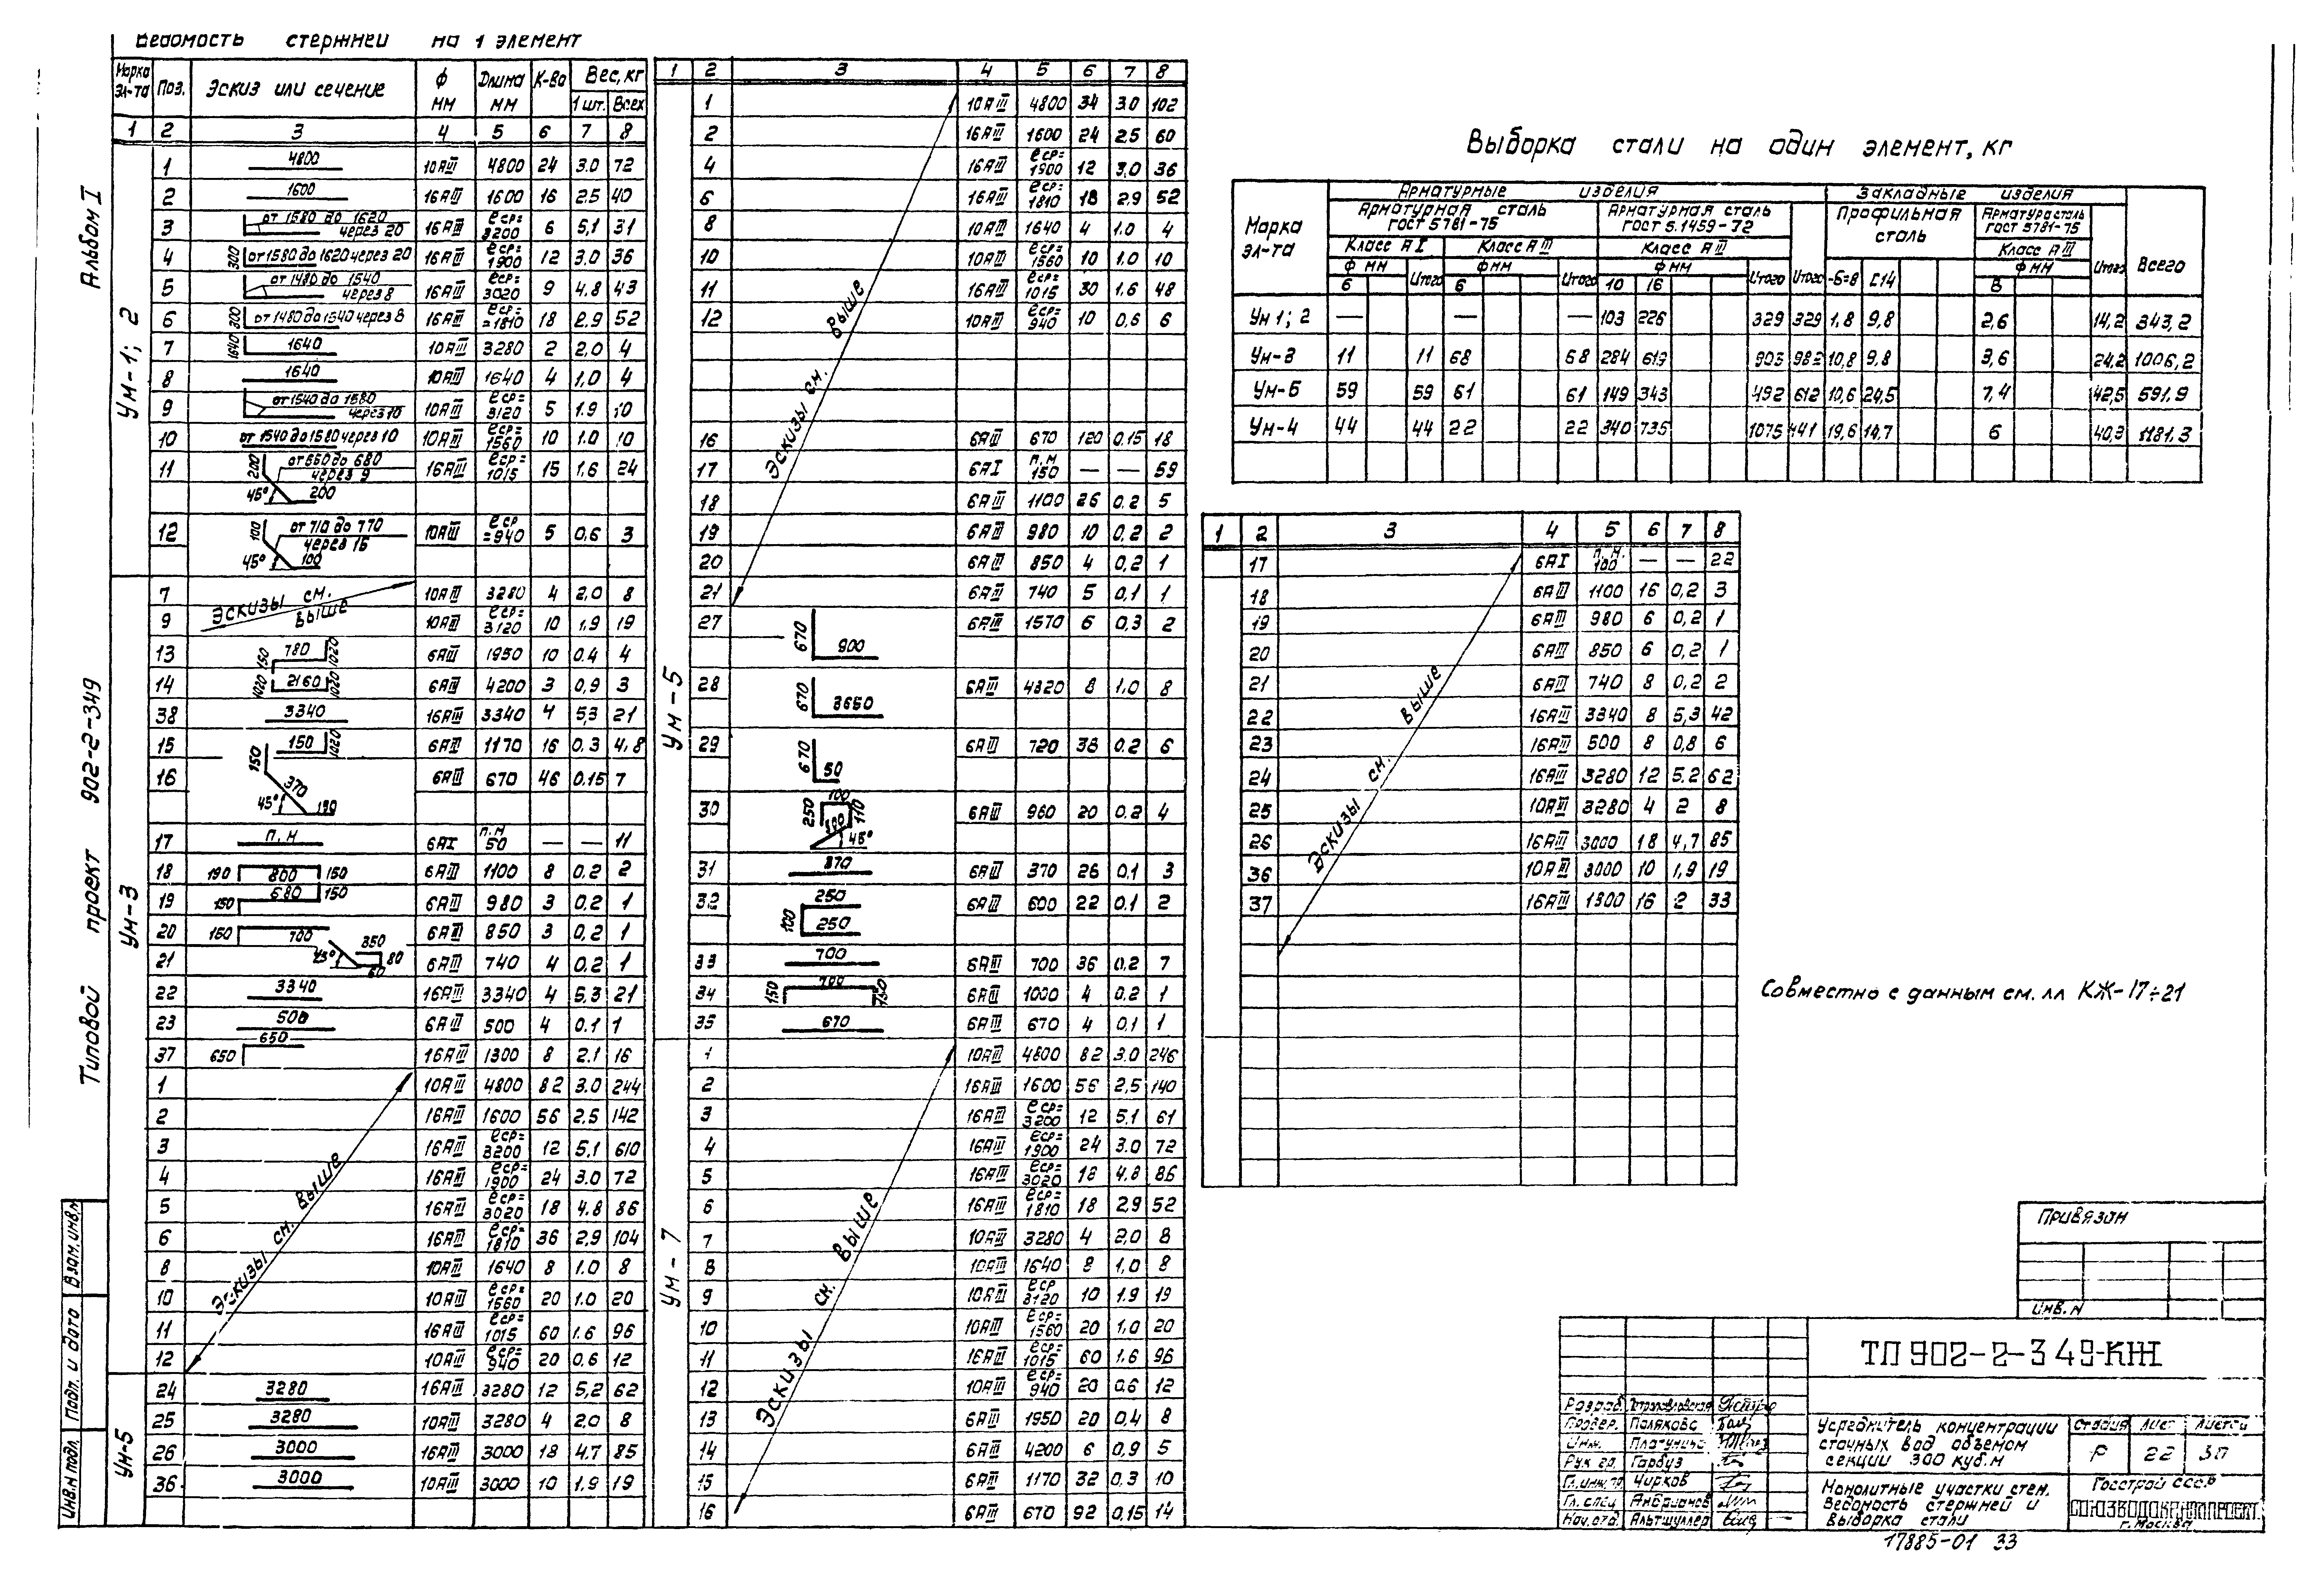 Ведомость стержней на 1 элемент
Марка эл-та Поз. Эскиз или сечение ф мм Длина мм К-во Вес, кг
1 шт. Всех
1 2 3 4 5 6 7 8
Ум-1; 2
1 4800 10АIII 4800 24 3.0 72
2 1600 16АIII 1600 16 2.5 40
3 от 1580 до 1620 через 20 16АIII ℓср= 3200 6 5,1 31
4 300 от 1580 до 1620 через 20 16АIII ℓср= 1900 12 3.0 36
5 от 1480 до 1540 через 8 16АIII ℓср= 3020 9 4.8 43
6 300 от 1480 до 1540 через 8 16АIII ℓср= =1810 18 2.9 52
7 1640 1640 10АIII 3280 2 2,0 4
8 1640 10АIII 1640 4 1,0 4
9 от 1540 до 1580 через 10 10АIII ℓср= 3120 5 1.9 10
10 от 1540 до 1580 через 10 10АIII ℓср= 1560 10 1.0 10
11 200 от 660 до 680 через 9 45° 200 16АIII ℓср= 1015 15 1.6 24
12 100 от 710 до 770 через 15 45° 100 10АIII ℓср =940 5 0,6 3
Ум-3
Эскизы см. выше
7 10АIII 3280 4 2.0 8
9 10АIII ℓср= 3120 10 1.9 19
13 150 780 1020 6АIII 1950 10 0.4 4
14 1020 2160 1020 6АIII 4200 3 0,9 3
38 3340 16АIII 3340 4 5,3 21
15 150 1020 6АIII 1170 16 0.3 4,8
16 150 370 45° 190 6АIII 670 46 0.15 7
17 п.м 6АI п.м 50 — — 11
18 190 800 150 6АIII 1100 8 0.2 2
19 150 680 150 6АIII 980 3 0.2 1
20 150 700 6АIII 850 3 0,2 1
21 45° 350 80 60 6АIII 740 4 0.2 1
22 3340 16АIII 3340 4 5,3 21
23 500 6АIII 500 4 0.1 1
37 650 650 16АIII 1300 8 2.1 16
Эскизы см. выше
1 10АIII 4800 82 3.0 244
2 16АIII 1600 56 2.5 142
3 16АIII ℓср= 3200 12 5,1 610
4 16АIII ℓср= 1900 24 3.0 72
5 16АIII ℓср= 3020 18 4.8 86
6 16АIII ℓср= 1810 36 2,9 104
8 10АIII 1640 8 1.0 8
10 10АIII ℓср= 1560 20 1.0 20
11 16АIII ℓср= 1015 60 1.6 96
12 10АIII ℓср= 940 20 0,6 12
Ум-5
24 3280 16АIII 3280 12 5,2 62
25 3280 10АIII 3280 4 2.0 8
26 3000 16АIII 3000 18 4.7 85
36 3000 10АIII 3000 10 1,9 19
1 2 3 4 5 6 7 8
Ум-5
Эскизы см. выше
1 10АIII 4800 34 3.0 102
2 16АIII 1600 24 2,5 60
4 16АIII ℓср= 1900 12 3,0 36
6 16АIII ℓср= 1810 18 2,9 52
8 10АIII 1640 4 1.0 4
10 10АIII ℓср= 1560 10 1,0 10
11 16АIII ℓср= 1015 30 1.6 48
12 10АIII ℓср= 940 10 0,6 6
16 6АIII 670 120 0,15 18
17 6АI п.м 150 — — 59
18 6АIII 1100 26 0.2 5
19 6АIII 980 10 0,2 2
20 6АIII 850 4 0,2 1
21 6АIII 740 5 0,1 1
27 670 900 6АIII 1570 6 0,3 2
28 670 3650 6АIII 4320 8 1,0 8
29 670 50 6АIII 720 38 0.2 6
30 250 100 110 300 45° 6АIII 960 20 0.2 4
31 370 6АIII 370 26 0,1 3
32 250 100 250 6АIII 600 22 0.1 2
33 700 6АIII 700 36 0,2 7
34 150 700 150 6АIII 1000 4 0.2 1
35 670 6АIII 670 4 0,1 1
Ум-7
Эскизы см. выше
1 10АIII 4800 82 3.0 246
2 16АIII 1600 56 2,5 140
3 16АIII ℓср= 3200 12 5,1 61
4 16АIII ℓср= 1900 24 3.0 72
5 16АIII ℓср= 3020 18 4.8 86
6 16АIII ℓср= 1810 18 2.9 52
7 10АIII 3280 4 2,0 8
8 10АIII 1640 8 1,0 8
9 10АIII ℓср 3120 10 1.9 19
10 10АIII ℓср= 1560 20 1,0 20
11 16АIII ℓср= 1015 60 1,6 96
12 10АIII ℓср= 940 20 0,6 12
13 6АIII 1950 20 0,4 8
14 6АIII 4200 6 0,9 5
15 6АIII 1170 32 0,3 10
16 6АIII 670 92 0,15 14
Выборка стали на один элемент, кг
Марка эл-та Арматурные изделия Закладные изделия Всего
Арматурная сталь ГОСТ 5781-75 Арматурная сталь ГОСТ 5.1459-72 Итого Профильная сталь Арматура сталь ГОСТ 5781-75 Итого
Класс АI Класс АIII Класс АIII Класс АIII
ф мм Итого ф мм Итого ф мм Итого -δ=8 [14 ф мм
6 6 10 16 8
Ум 1; 2 — — — 103 226 329 329 1,8 9,8 2,6 14,2 343,2
Ум-3 11 11 68 68 284 619 903 982 10,8 9,8 3,6 24,2 1006,2
Ум-5 59 59 61 61 149 343 492 612 10,6 24,5 7,4 42,5 591.9
Ум-4 44 44 22 22 340 735 1075 1141 19,6 14,7 6 40,3 1181.3
1 2 3 4 5 6 7 8
Эскизы см. выше
17 6АI п.м. 100 — — 22
18 6АIII 1100 16 0,2 3
19 6АIII 980 6 0,2 1
20 6АIII 850 6 0,2 1
21 6АIII 740 8 0,2 2
22 16АIII 3340 8 5,3 42
23 16АIII 500 8 0,8 6
24 16АIII 3280 12 5.2 62
25 10АIII 3280 4 2 8
26 16АIII 3000 18 4,7 85
36 10АIII 3000 10 1,9 19
37 16АIII 1300 16 2 33
Совместно с данным см. лл КЖ-17÷21
Альбом I
Типовой проект 902-2-349
Взам. инв. №
Подп. и дата
Инв. № подл.
Привязан
Инв. №
ТП 902-2-349-КЖ
Разраб.
Провер. Полякова
Инж.
Рук. гр. Гарбуз
Гл. инж. пр. Чирков
Гл. спец. Андрианов
Нач. отд. Альтшуллер
Усреднитель концентрации сточных вод объемом секции 300 куб.м
Стадия Лист Листов
Р 22 30
Монолитные участки стен. Ведомость стержней и выборка стали
Госстрой СССР
СОЮЗВОДОКАНАЛПРОЕКТ
г. Москва
17885-01 33